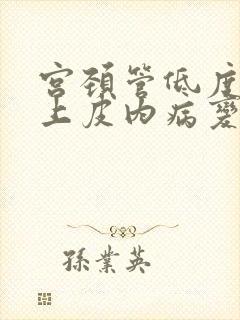 宫颈管低度
上皮内病变
孫業英